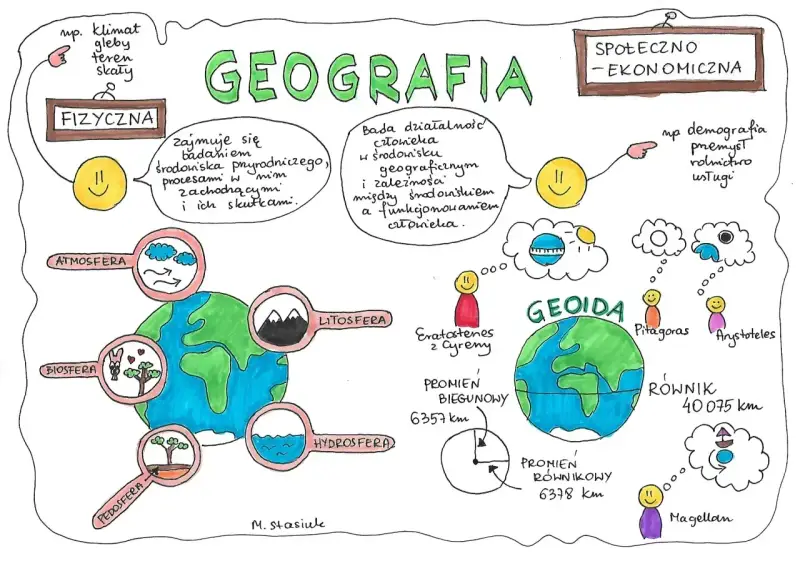 GEOGRAFIA
np. klimat
gleby
teren
skały
FIZYCZNA
Zajmuje się
badaniem
środowiska przyrodniczego,
procesami w nim
zachodzącymi
i ich skutkami.
SPOŁECZNO
-EKONOMICZNA
Bada działalność
człowieka
w środowisku
geograficznym
i zależności
między środowiskiem
a funkcjonowaniem
człowieka.
np demografia
przemysł
rolnictwo
usługi
ATMOSFERA
LITOSFERA
BIOSFERA
HYDROSFERA
PEDOSFERA
M. Stasiuk
Eratostenes
z Cyreny
GEOIDA
Pitagoras
Arystoteles
PROMIEŃ
BIEGUNOWY
6357 km
RÓWNIK
40 075 km
PROMIEŃ
RÓWNIKOWY
6378 km
Magellan